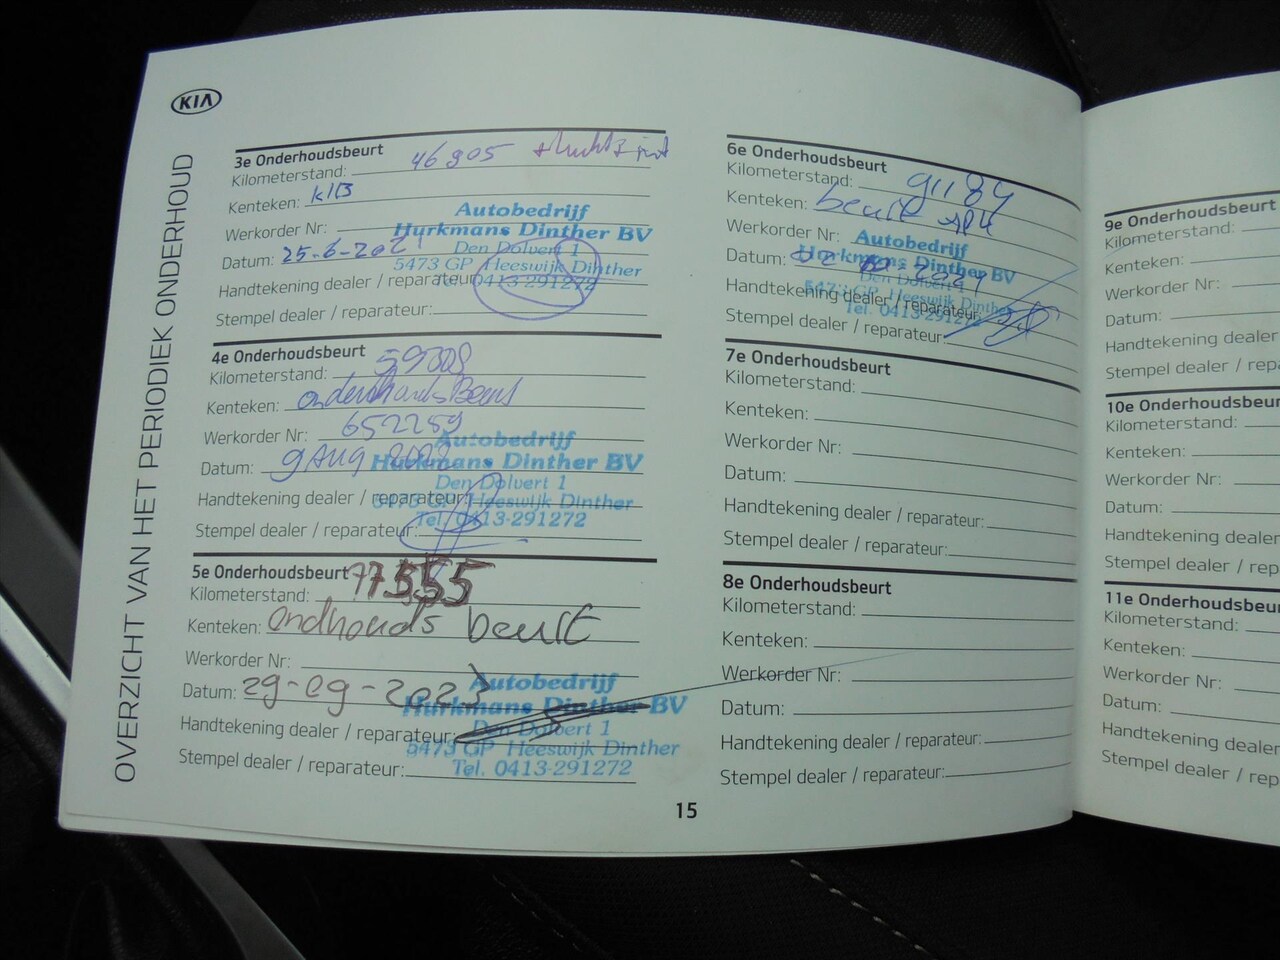 KIA
OVERZICHT VAN HET PERIODIEK ONDERHOUD
3e Onderhoudsbeurt
Kilometerstand: 46905
Kenteken: KLB
Werkorder Nr:
Datum: 25-6-202
Handtekening dealer / reparateur:
Stempel dealer / reparateur:
Autobedrijf
Hurkmans Dinther BV
Den Dolvert 1
5473 GP Heeswijk Dinther
Tel. 0413-291272
4e Onderhoudsbeurt
Kilometerstand: 59008
Kenteken: onderhoudsBeurt
Werkorder Nr: 652259
Datum: 9 AUG 2022
Handtekening dealer / reparateur:
Stempel dealer / reparateur:
Autobedrijf
Hurkmans Dinther BV
Den Dolvert 1
5473 GP Heeswijk Dinther
Tel. 0413-291272
5e Onderhoudsbeurt
Kilometerstand: 77555
Kenteken: ondhouds beurt
Werkorder Nr:
Datum: 29-09-2023
Handtekening dealer / reparateur:
Stempel dealer / reparateur:
Autobedrijf
Hurkmans Dinther BV
Den Dolvert 1
5473 GP Heeswijk Dinther
Tel. 0413-291272
6e Onderhoudsbeurt
Kilometerstand: 91184
Kenteken: beurt
Werkorder Nr:
Datum:
Handtekening dealer / reparateur:
Stempel dealer / reparateur:
Autobedrijf
Hurkmans Dinther BV
Den Dolvert 1
5473 GP Heeswijk Dinther
Tel. 0413-291272
7e Onderhoudsbeurt
Kilometerstand:
Kenteken:
Werkorder Nr:
Datum:
Handtekening dealer / reparateur:
Stempel dealer / reparateur:
8e Onderhoudsbeurt
Kilometerstand:
Kenteken:
Werkorder Nr:
Datum:
Handtekening dealer / reparateur:
Stempel dealer / reparateur:
15
9e Onderhoudsbeurt
Kilometerstand:
Kenteken:
Werkorder Nr:
Datum:
Handtekening dealer
Stempel dealer / rep
10e Onderhoudsbeur
Kilometerstand:
Kenteken:
Werkorder Nr:
Datum:
Handtekening dealer
Stempel dealer / rep
11e Onderhoudsbeu
Kilometerstand:
Kenteken:
Werkorder Nr:
Datum:
Handtekening dealer
Stempel dealer / repa